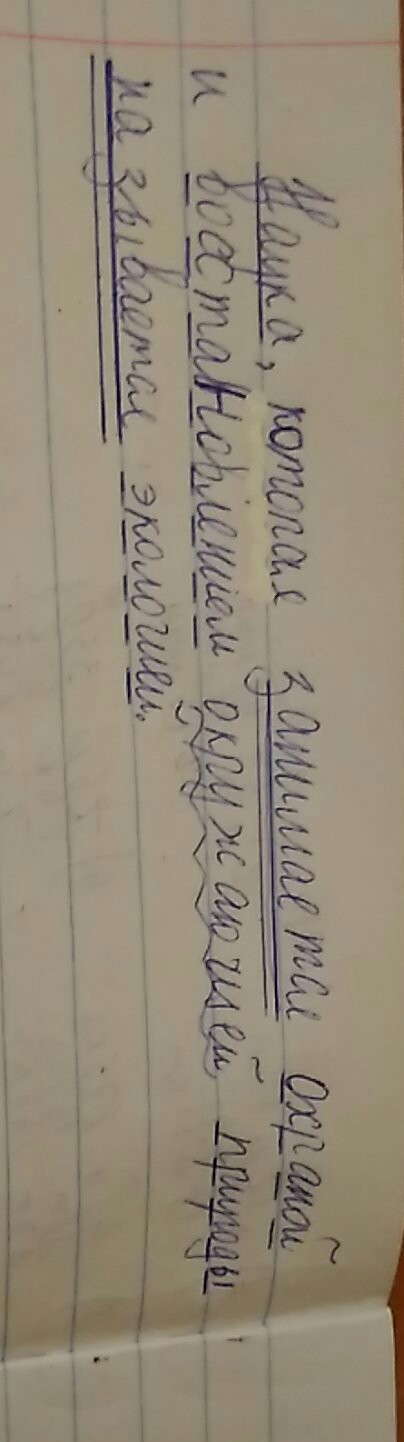 Наука, которая занимается охраной
и востановлением окружающей природы
называется экологией.